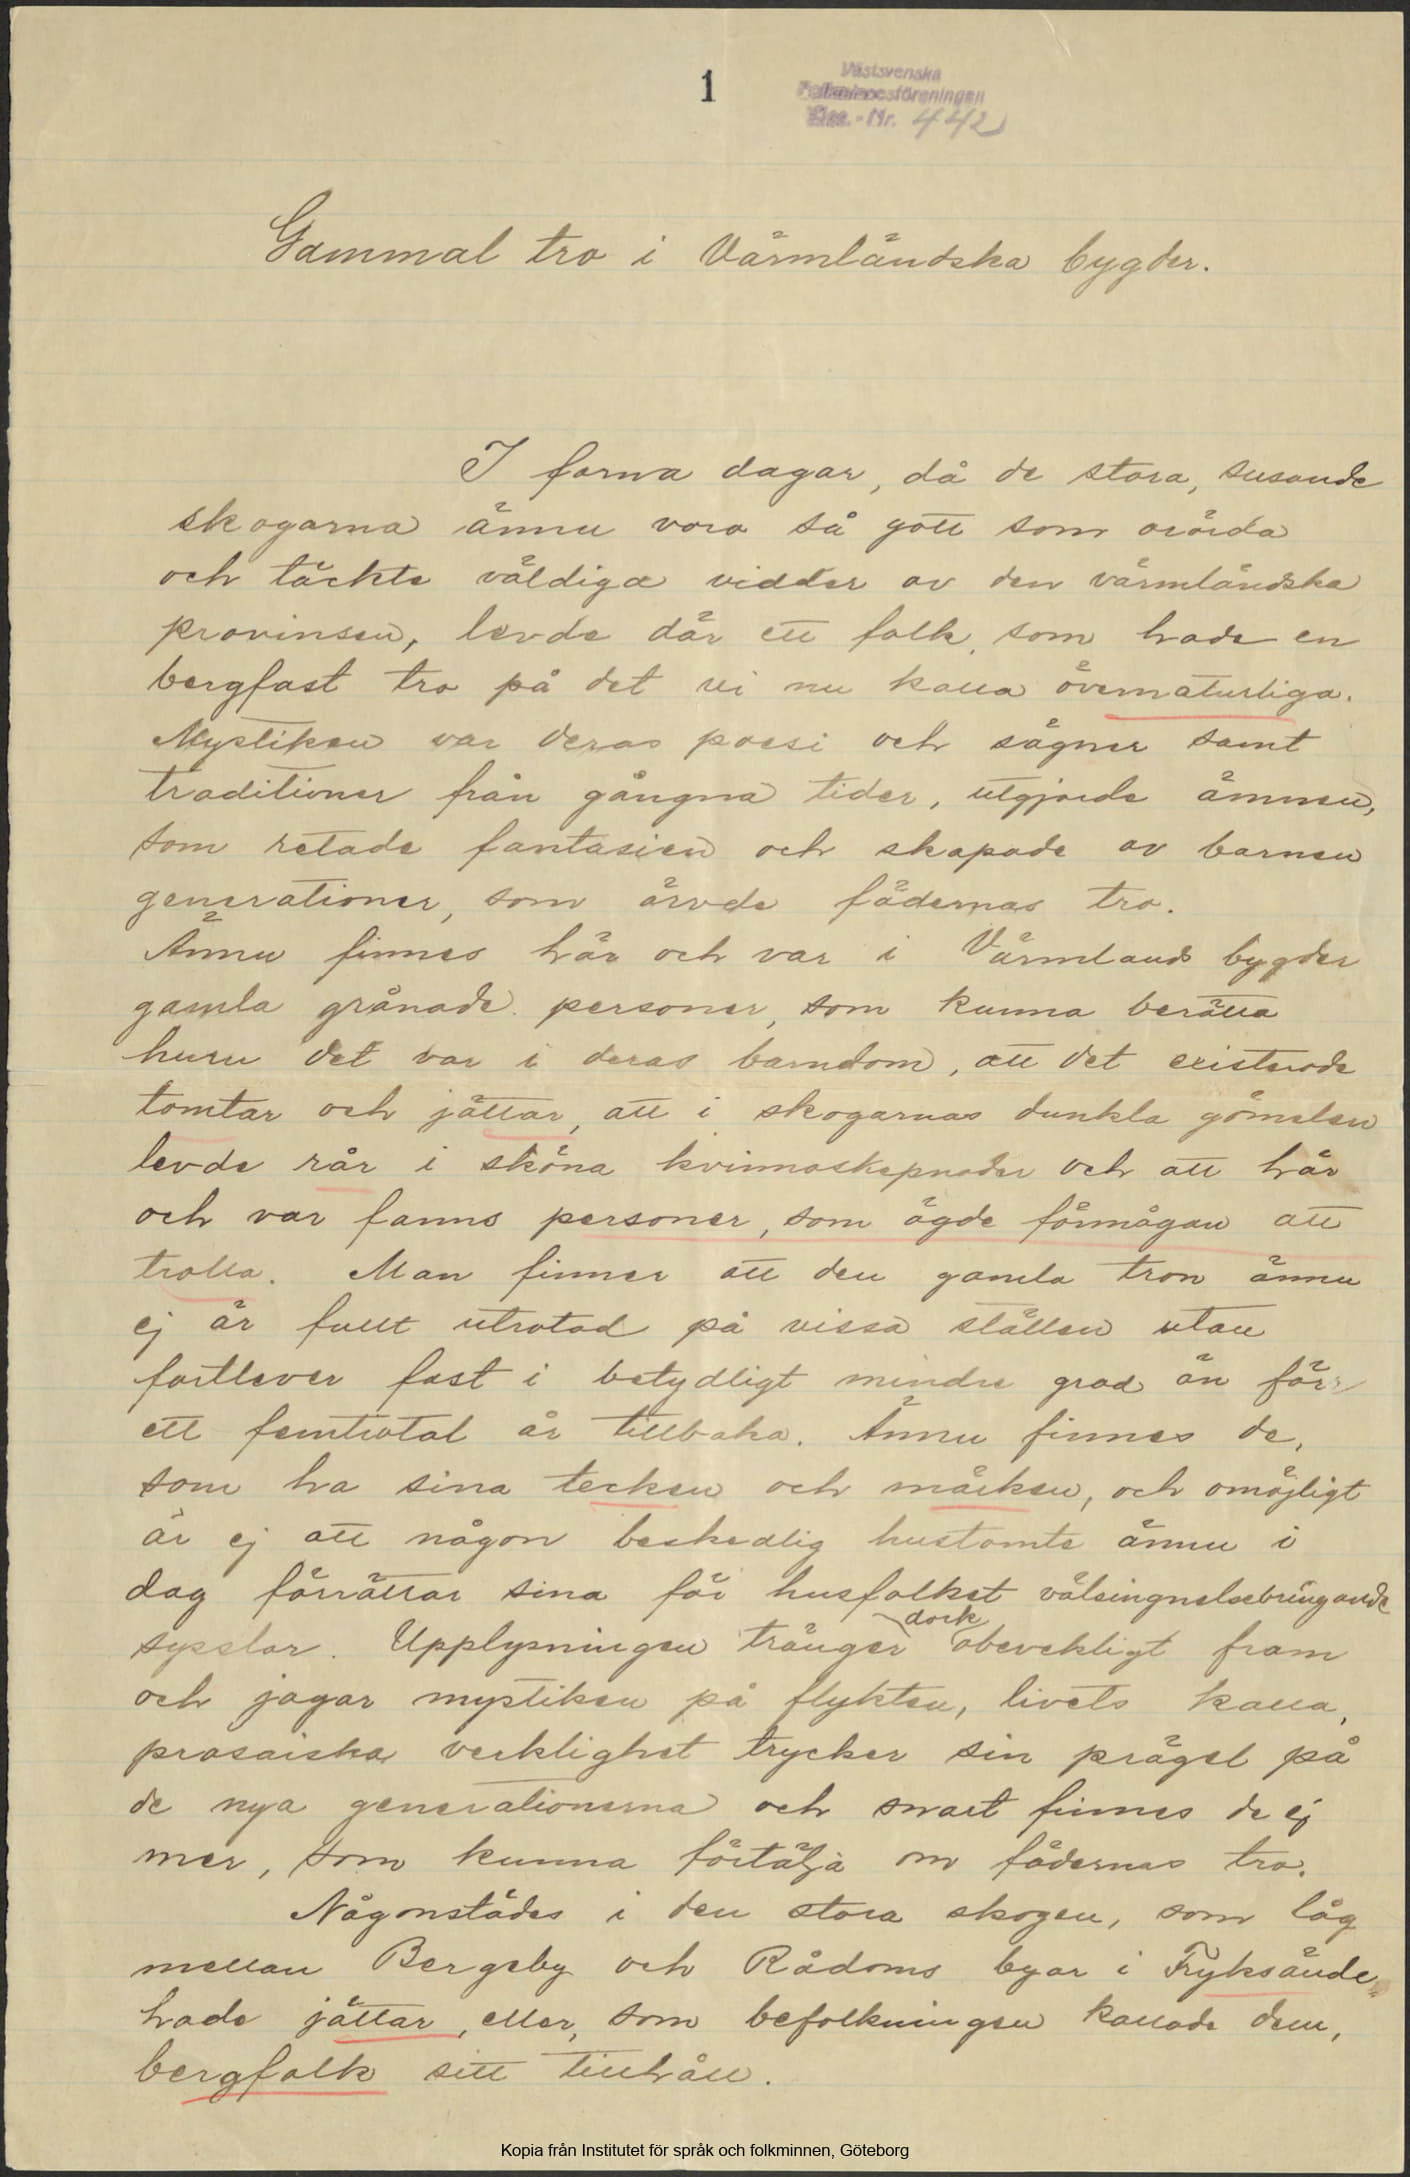 1
Västsvenska
Folkminnesföreningen
Acc.-Nr. 442
Gammal tro i Värmländska bygder.
I forna dagar, då de stora, susande
skogarna ännu voro så gott som orörda
och täckte väldiga vidder av den värmländska
provinsen, levde där ett folk, som hade en
bergfast tro på det vi nu kalla övernaturliga.
Mystiken var deras poesi och sägner samt
traditioner från gångna tider, utgjorde ämnen,
som retade fantasien och skapade av barnen
generationer, som ärvde fädernas tro.
Ännu finnes här och var i Värmlands bygder
gamla grånade personer, som kunna berätta
huru det var i deras barndom, att det existerade
tomtar och jättar, att i skogarnas dunkla gömslen
levde rår i sköna kvinnoskepnader och att här
och var fanns personer, som ägde förmågan att
trolla. Man finner att den gamla tron ännu
ej är fullt utrotad på vissa ställen utan
fortlever fast i betydligt mindre grad än förr
ett femtiotal år tillbaka. Ännu finnes de,
som ha sina tecken och märken, och omöjligt
är ej att någon beskedlig hustomte ännu i
dag förrättar sina för husfolket välsingnelsebringande
sysslor. Upplysningen tränger dock obevekligt fram
och jagar mystiken på flykten, livets kalla,
prosaiska verklighet trycker sin prägel på
de nya generationerna och snart finnes de ej
mer, som kunna förtälja om fädernas tro.
Någonstädes i den stora skogen, som låg
mellan Bergeby och Rådoms byar i Fryksände
hade jättar, eller, som befolkningen kallade dem,
bergfolk sitt tillhåll.
Kopia från Institutet för språk och folkminnen, Göteborg